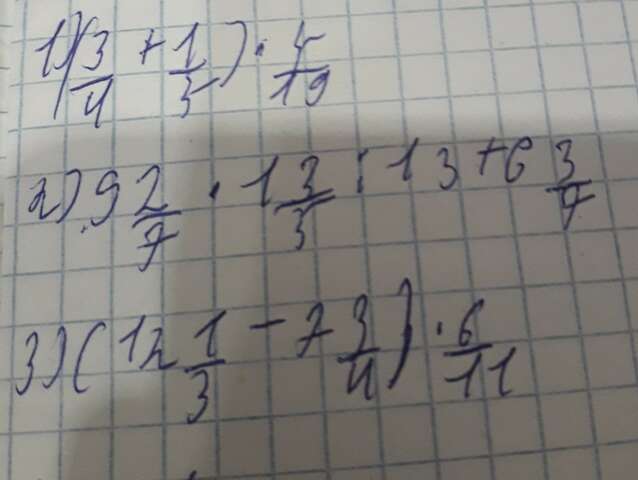 1) (3/4 + 1/5) · 5/19
2) 9 2/7 · 1 3/5 : 13 + 6 3/7
3) (12 1/3 - 7 3/4) · 6/11